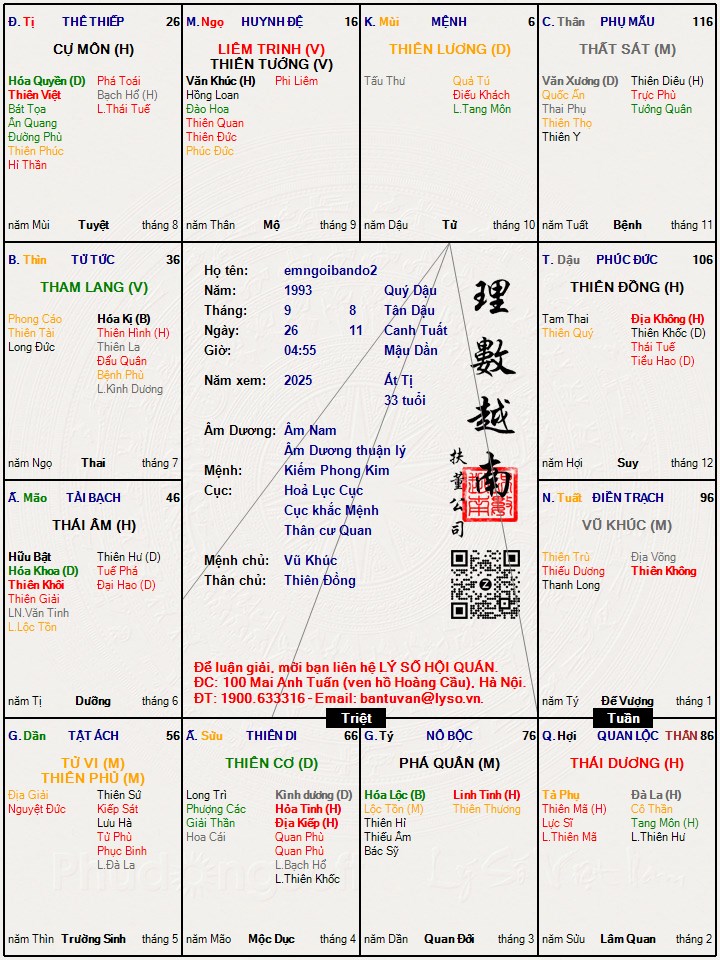 Đ. Tị THÊ THIẾP 26
CỰ MÔN (H)
Hóa Quyền (D)
Thiên Việt
Bát Tọa
Ân Quang
Đường Phù
Thiên Phúc
Hỉ Thần
Phá Toái
Bạch Hổ (H)
L.Thái Tuế
năm Mùi Tuyệt tháng 8
M. Ngọ HUYNH ĐỆ 16
LIÊM TRINH (V)
THIÊN TƯỚNG (V)
Văn Khúc (H)
Hồng Loan
Đào Hoa
Thiên Quan
Thiên Đức
Phúc Đức
Phi Liêm
năm Thân Mộ tháng 9
K. Mùi MỆNH 6
THIÊN LƯƠNG (D)
Tấu Thư
Quả Tú
Điếu Khách
L.Tang Môn
năm Dậu Tử tháng 10
C. Thân PHỤ MẪU 116
THẤT SÁT (M)
Văn Xương (D)
Quốc Ấn
Thai Phụ
Thiên Thọ
Thiên Y
Thiên Diêu (H)
Trực Phù
Tướng Quân
năm Tuất Bệnh tháng 11
B. Thìn TỬ TỨC 36
THAM LANG (V)
Phong Cáo
Thiên Tài
Long Đức
Hóa Kị (B)
Thiên Hình (H)
Thiên La
Đẩu Quân
Bệnh Phù
L.Kình Dương
năm Ngọ Thai tháng 7
Họ tên: emngoibando2
Năm: 1993 Quý Dậu
Tháng: 9 8 Tân Dậu
Ngày: 26 11 Canh Tuất
Giờ: 04:55 Mậu Dần
Năm xem: 2025 Ất Tị
33 tuổi
Âm Dương: Âm Nam
Âm Dương thuận lý
Mệnh: Kiếm Phong Kim
Cục: Hoả Lục Cục
Cục khắc Mệnh
Thân cư Quan
Mệnh chủ: Vũ Khúc
Thân chủ: Thiên Đồng
理數越南
扶董公司
Z
Để luận giải, mời bạn liên hệ LÝ SỐ HỘI QUÁN.
ĐC: 100 Mai Anh Tuấn (ven hồ Hoàng Cầu), Hà Nội.
ĐT: 1900.633316 - Email: bantuvan@lyso.vn.
T. Dậu PHÚC ĐỨC 106
THIÊN ĐỒNG (H)
Tam Thai
Thiên Quý
Địa Không (H)
Thiên Khốc (D)
Thái Tuế
Tiểu Hao (D)
năm Hợi Suy tháng 12
Ấ. Mão TÀI BẠCH 46
THÁI ÂM (H)
Hữu Bật
Hóa Khoa (D)
Thiên Khôi
Thiên Giải
LN.Văn Tinh
L.Lộc Tồn
Thiên Hư (D)
Tuế Phá
Đại Hao (D)
năm Tị Dưỡng tháng 6
N. Tuất ĐIỀN TRẠCH 96
VŨ KHÚC (M)
Thiên Trù
Thiếu Dương
Thanh Long
Địa Võng
Thiên Không
năm Tý Đế Vượng tháng 1
Triệt
Tuần
G. Dần TẬT ÁCH 56
TỬ VI (M)
THIÊN PHỦ (M)
Địa Giải
Nguyệt Đức
Thiên Sứ
Kiếp Sát
Lưu Hà
Tử Phù
Phục Binh
L.Đà La
năm Thìn Trường Sinh tháng 5
Ấ. Sửu THIÊN DI 66
THIÊN CƠ (D)
Long Trì
Phượng Các
Giải Thần
Hoa Cái
Kình dương (D)
Hỏa Tinh (H)
Địa Kiếp (H)
Quan Phủ
Quan Phù
L.Bạch Hổ
L.Thiên Khốc
năm Mão Mộc Dục tháng 4
G. Tý NÔ BỘC 76
PHÁ QUÂN (M)
Hóa Lộc (B)
Lộc Tồn (M)
Thiên Hỉ
Thiếu Âm
Bác Sỹ
Linh Tinh (H)
Thiên Thương
năm Dần Quan Đới tháng 3
Q. Hợi QUAN LỘC THÂN 86
THÁI DƯƠNG (H)
Tả Phụ
Thiên Mã (H)
Lực Sĩ
L.Thiên Mã
Đà La (H)
Cô Thần
Tang Môn (H)
L.Thiên Hư
năm Sửu Lâm Quan tháng 2